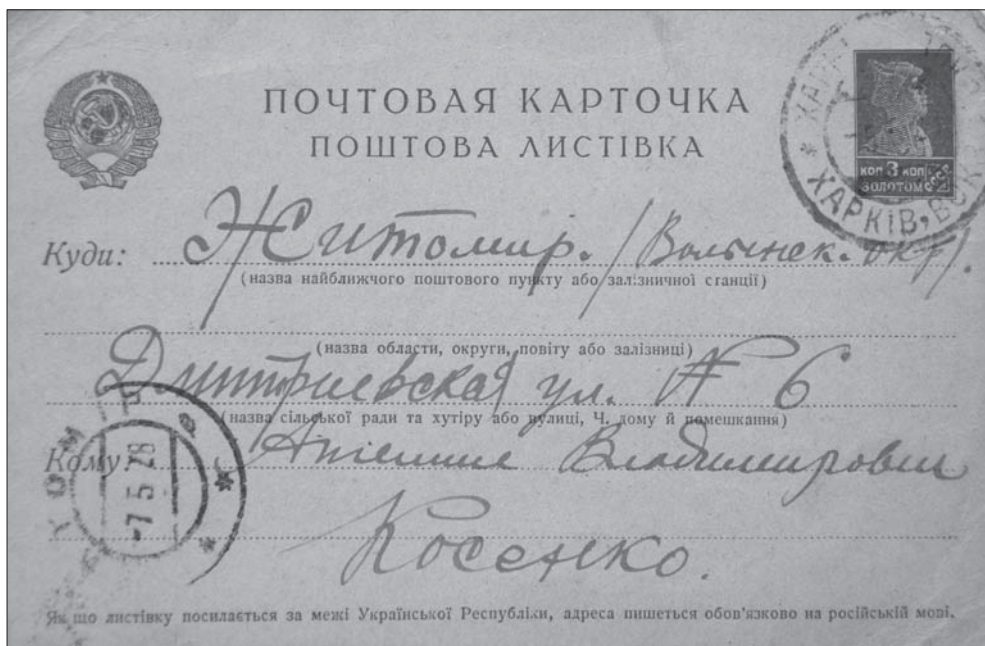 ПОЧТОВАЯ КАРТОЧКА
ПОШТОВА ЛИСТІВКА
КОП 3 КОП
ЗОЛОТОМ
СССР
ХАРКІВ, ВОК
Куди: Житомир. /Волынск. окр/.
(назва найближчого поштового пункту або залізничної станції)
(назва области, округи, повіту або залізниці)
Дмитриевская ул. № 6
(назва сільської ради та хутіру або вулиці, Ч. дому й помешкання)
Кому: Ангелине Владимировне
Косенко.
-7 5 28
Як що листівку посилається за межі Української Республіки, адреса пишеться обов'язково на російській мові.